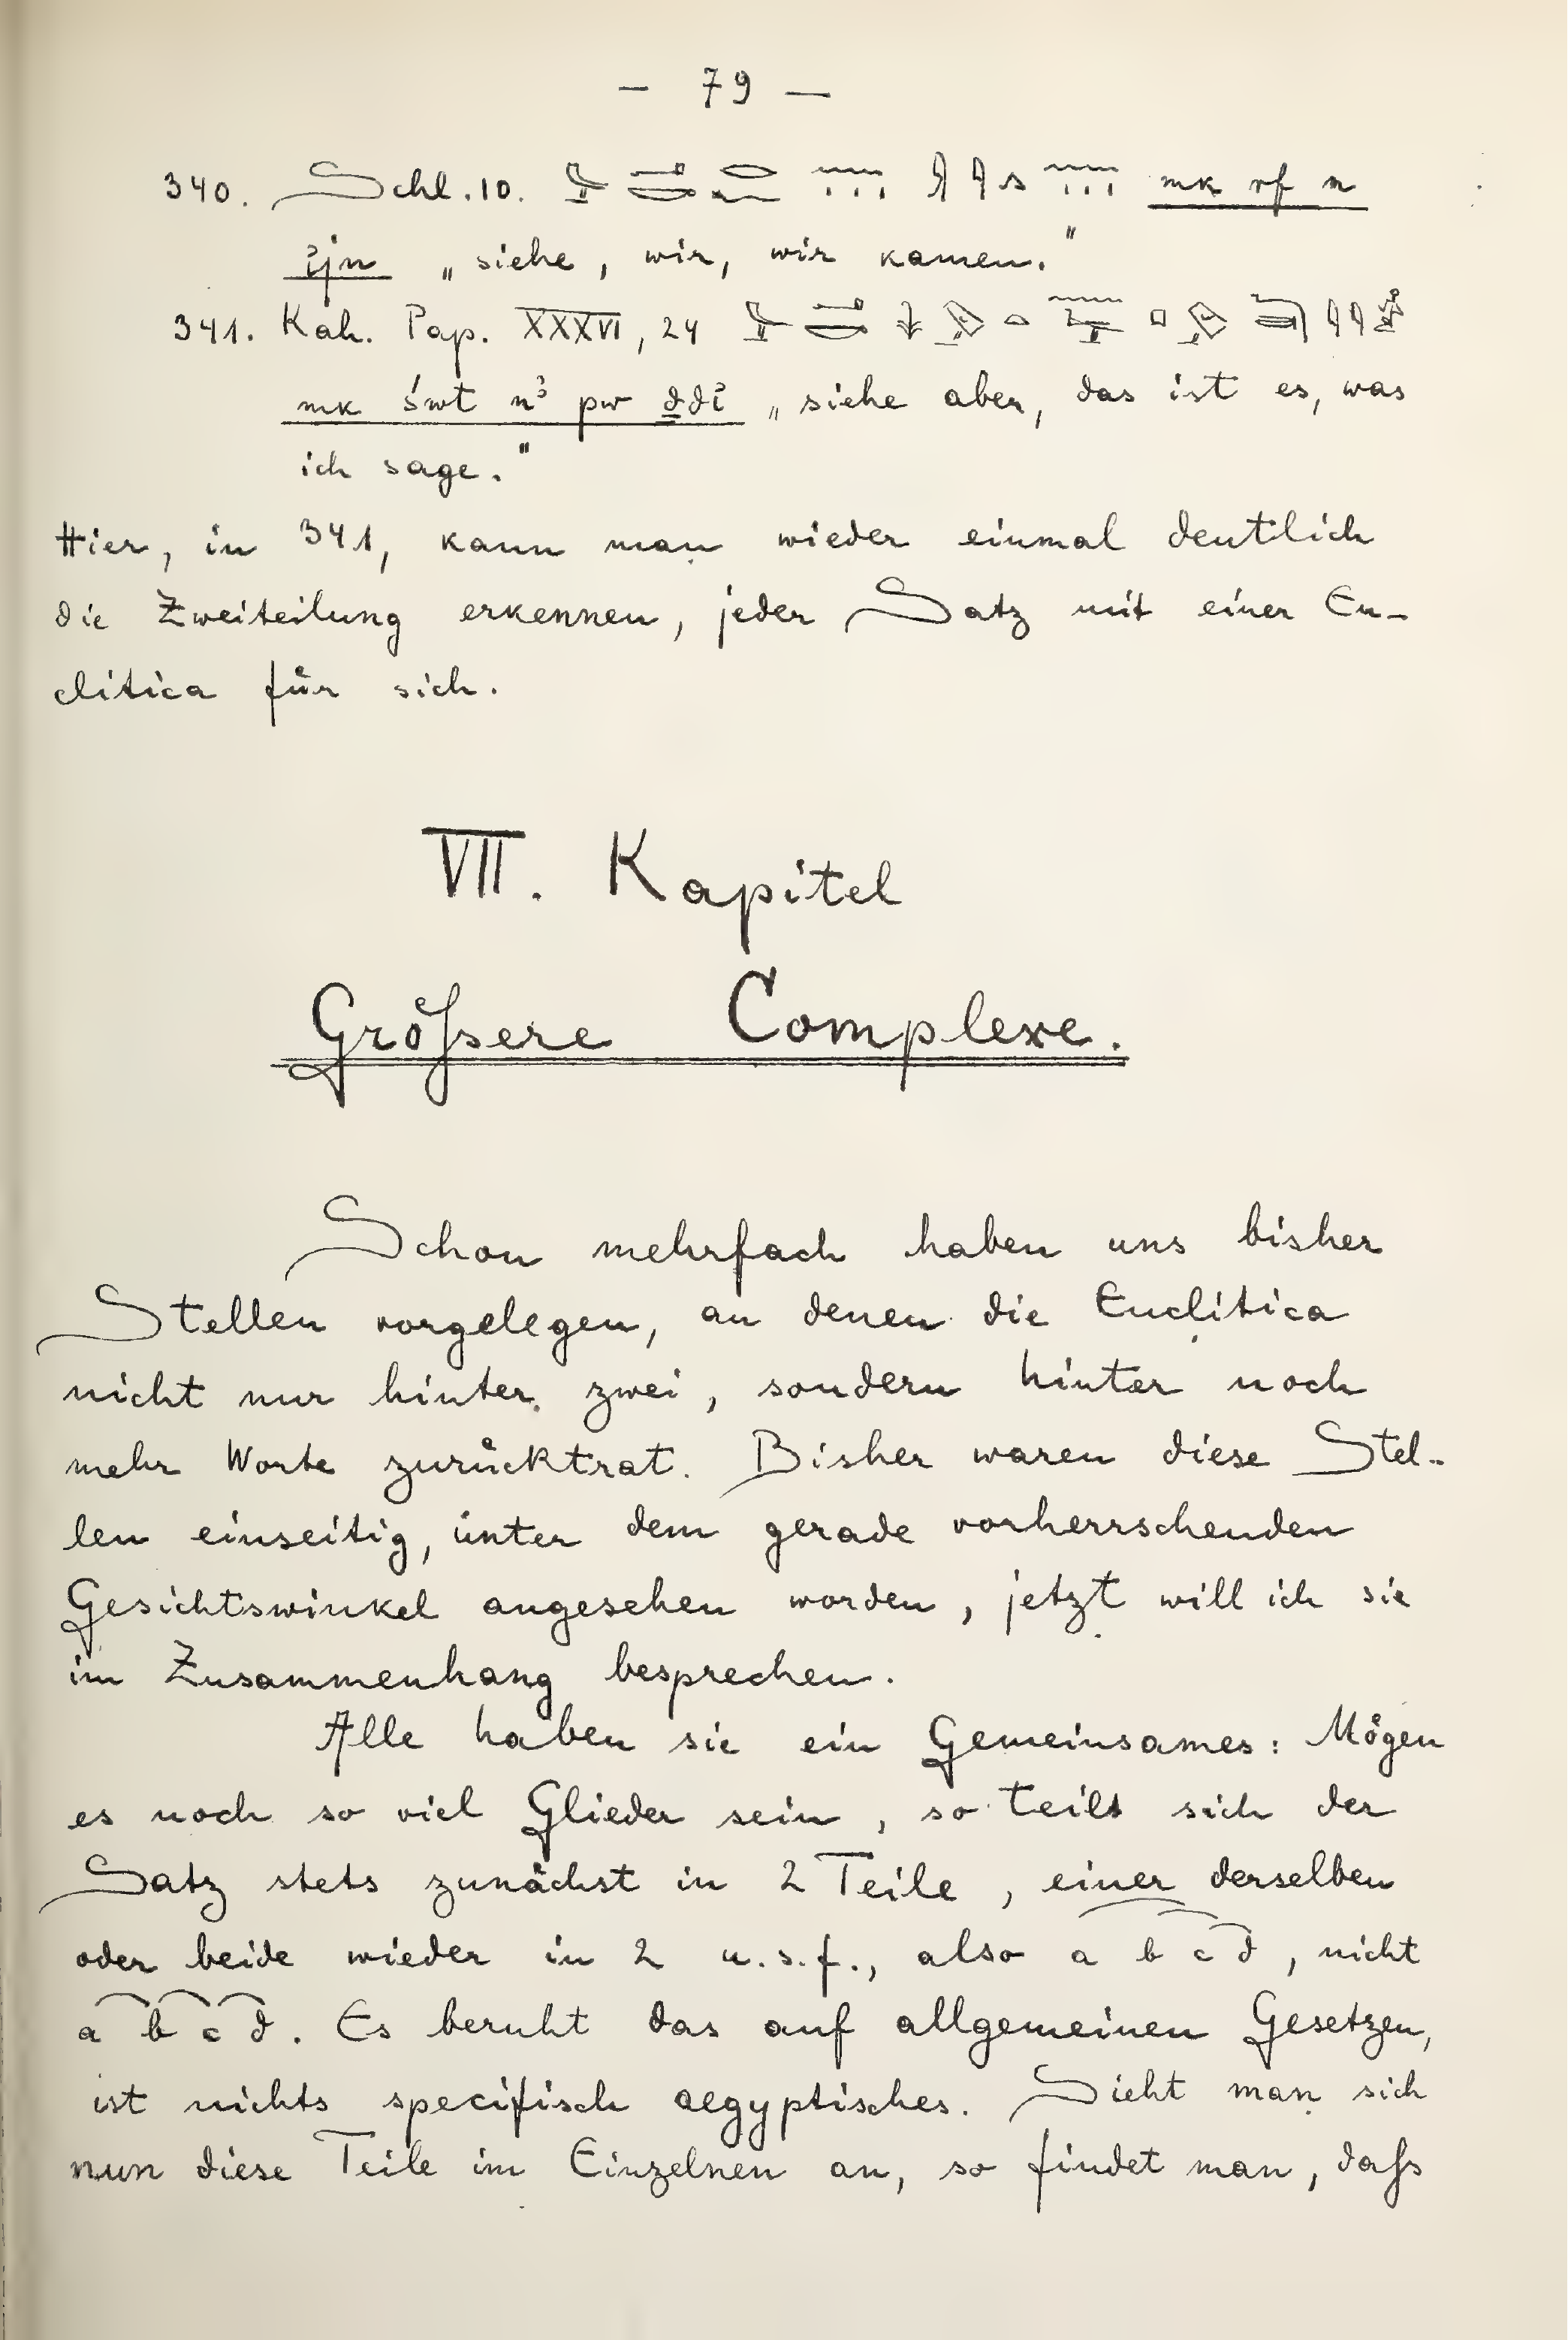 — 79 —
340. Schl. 10. mk rf n
ỉjn „siehe, wir, wir kamen."
341. Kah. Pap. XXXVI, 24
mk śwt nꜣ pw ḏdỉ „siehe aber, das ist es, was
ich sage."
Hier, in 341, kann man wieder einmal deutlich
die Zweiteilung erkennen, jeder Satz mit einer En-
clitica für sich.
VII. Kapitel
Größere Complexe.
Schon mehrfach haben uns bisher
Stellen vorgelegen, an denen die Enclitica
nicht nur hinter zwei, sondern hinter noch
mehr Worte zurücktrat. Bisher waren diese Stel-
len einseitig, unter dem gerade vorherrschenden
Gesichtswinkel angesehen worden, jetzt will ich sie
im Zusammenhang besprechen.
Alle haben sie ein Gemeinsames: Mögen
es noch so viel Glieder sein, so teilt sich der
Satz stets zunächst in 2 Teile, einer derselben
oder beide wieder in 2 u.s.f., also a b c d, nicht
a b c d. Es beruht das auf allgemeinen Gesetzen,
ist nichts specifisch aegyptisches. Sieht man sich
nun diese Teile im Einzelnen an, so findet man, daß